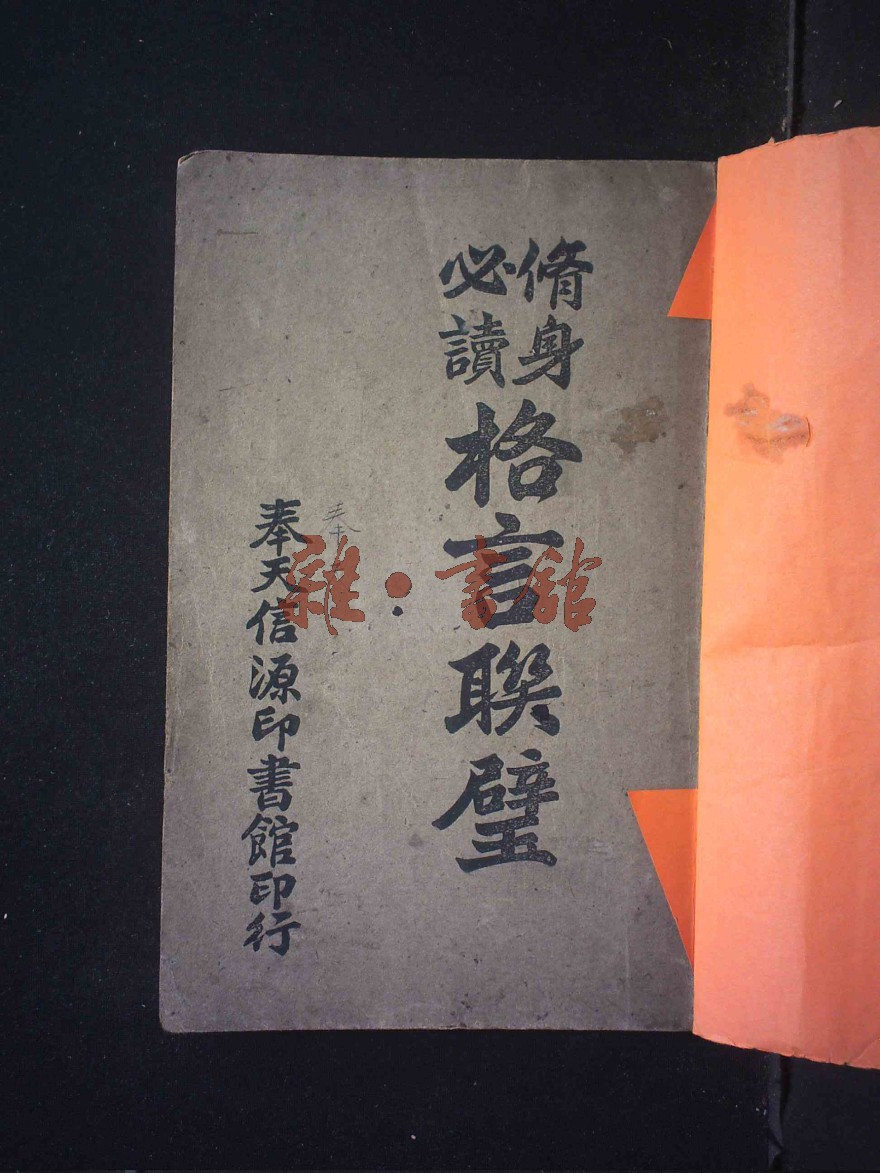 脩身
必讀
格言聯璧
奉
奉天信源印書館印行
雜·書館